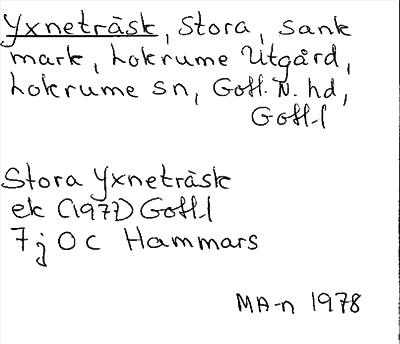 Yxneträsk, Stora, sank
mark, Lokrume Utgård,
Lokrume sn, Gotl. N. hd,
Gotl. l
Stora Yxneträsk
ek (1977) Gotl. l
7 j 0 c Hammars
MA-n 1978